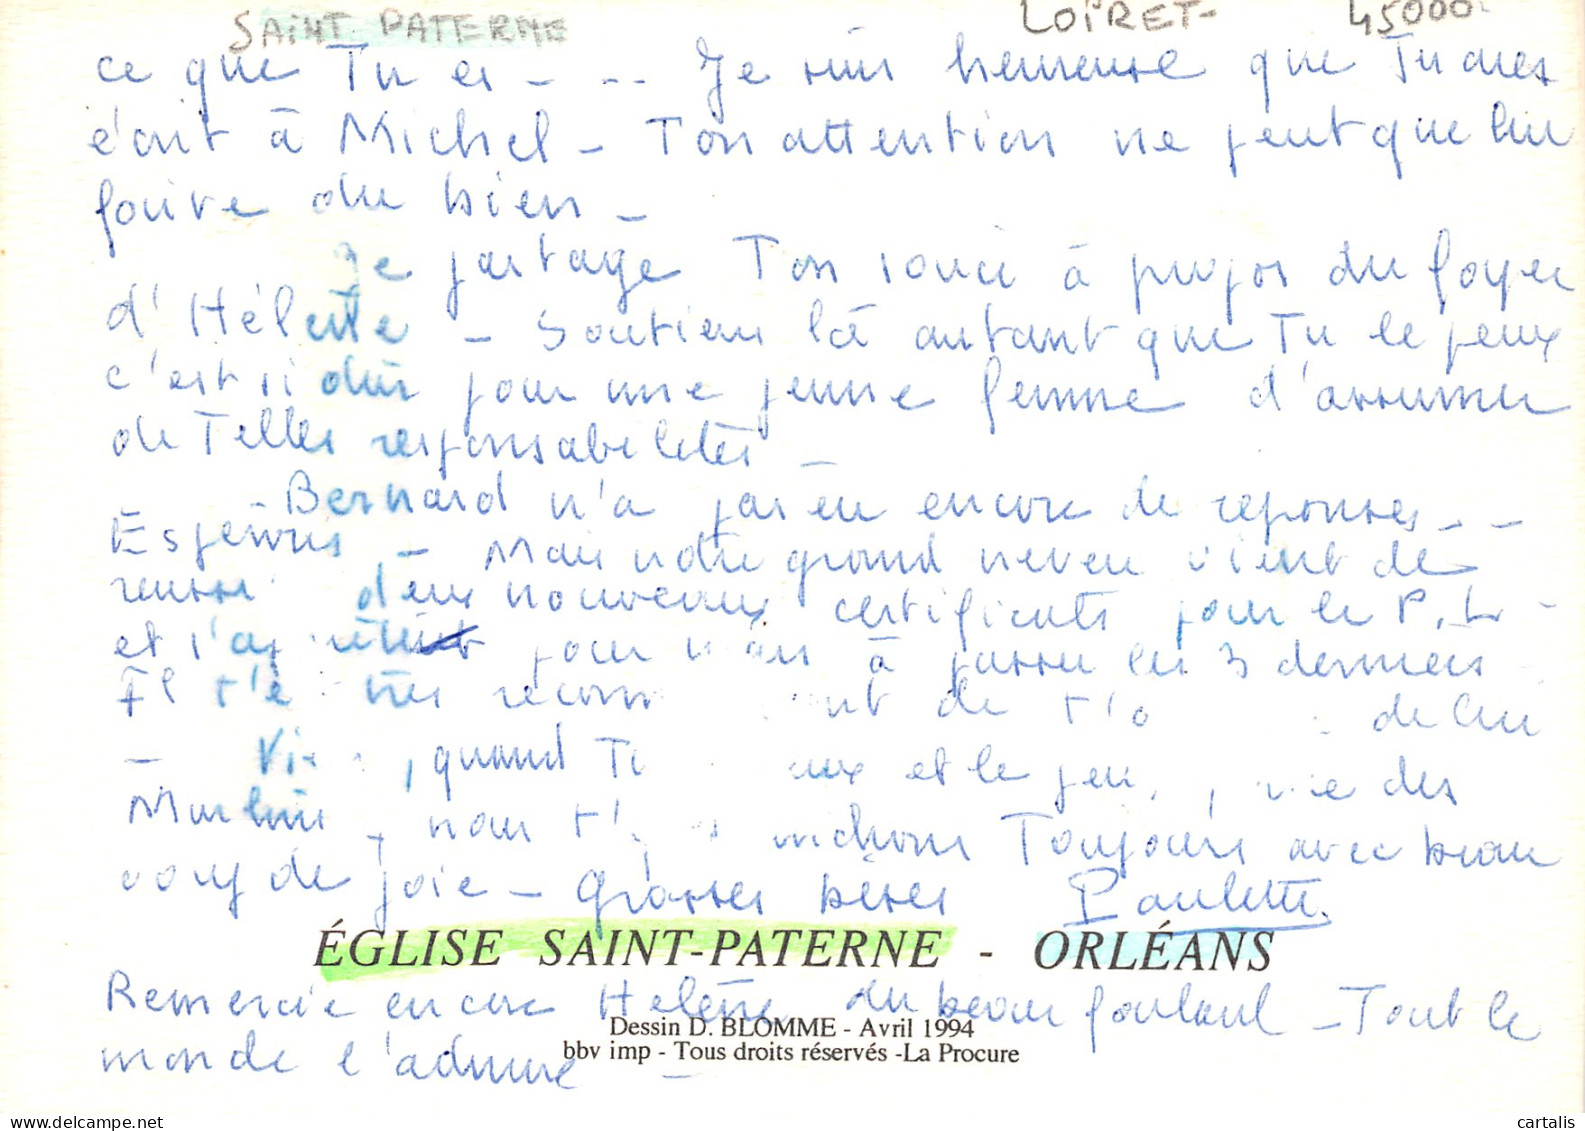 SAINT PATERNE LOIRET- 45000
ce que Tu es - -- Je suis heureuse que Tu aies
écrit à Michel - Ton attention ne peut que lui
faire du bien -
Je partage Ton souci à propos du foyer
d'Hélène - Soutiens là autant que Tu le peux
c'est si dur pour une jeune femme d'assumer
de Telles responsabilités -
- Bernard n'a pas eu encore de réponses - -
Espérons - Mais notre grand neveu vient de
réussir deux nouveaux certificats pour le P.L -
et s'a pour à passer les 3 derniers -
Il t'e très de t'o de lui
- Vi , quand T eux et le peu , des
, nous t' Toujours avec beau
coup de joie - Grosses bises Paulette
ÉGLISE SAINT-PATERNE - ORLÉANS
Remercie encore Hélène du beau foulard - Tout le
Dessin D. BLOMME - Avril 1994
monde l'admire -
bbv imp - Tous droits réservés -La Procure
cartalis